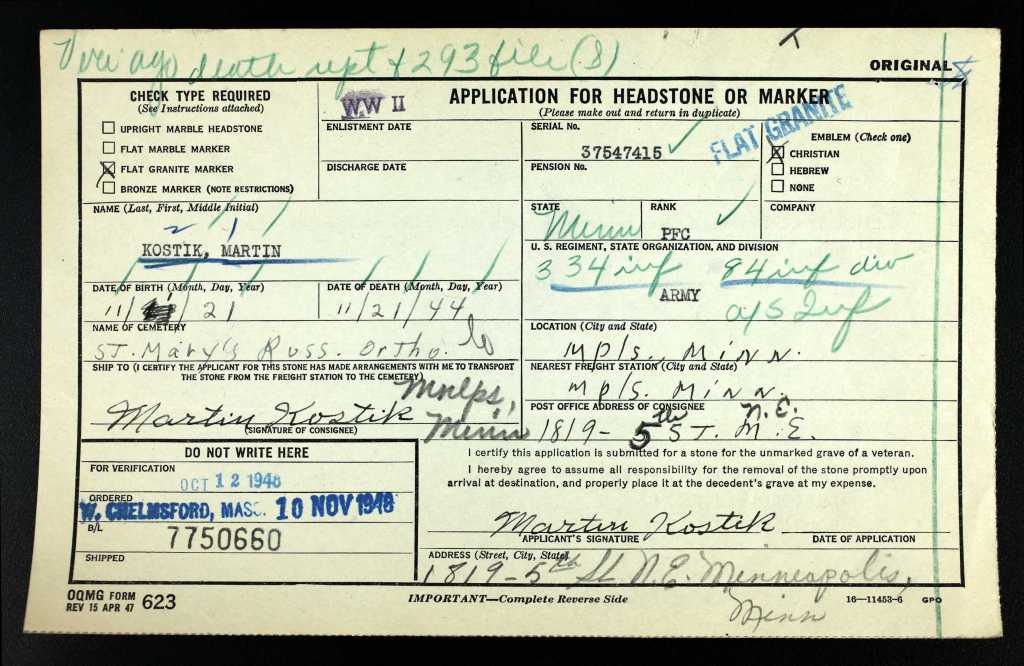 Veri ago death rept & 293 file (8)
ORIGINAL
CHECK TYPE REQUIRED
(See Instructions attached)
UPRIGHT MARBLE HEADSTONE
FLAT MARBLE MARKER
FLAT GRANITE MARKER
BRONZE MARKER (NOTE RESTRICTIONS)
WW II
ENLISTMENT DATE
DISCHARGE DATE
APPLICATION FOR HEADSTONE OR MARKER
(Please make out and return in duplicate)
SERIAL No.
37547415
PENSION No.
FLAT GRANITE
EMBLEM (Check one)
CHRISTIAN
HEBREW
NONE
NAME (Last, First, Middle Initial)
2 1
KOSTIK, MARTIN
STATE
Minn
RANK
PFC
COMPANY
U. S. REGIMENT, STATE ORGANIZATION, AND DIVISION
334 inf 84 inf div
ARMY
a/s Inf
DATE OF BIRTH (Month, Day, Year)
11/ /21
DATE OF DEATH (Month, Day, Year)
11/21/44
NAME OF CEMETERY
ST. Mary's Russ. Ortho.
LOCATION (City and State)
Mpls. Minn.
SHIP TO (I CERTIFY THE APPLICANT FOR THIS STONE HAS MADE ARRANGEMENTS WITH ME TO TRANSPORT
THE STONE FROM THE FREIGHT STATION TO THE CEMETERY)
Martin Kostik
Mnlps,
Minn
(SIGNATURE OF CONSIGNEE)
NEAREST FREIGHT STATION (City and State)
Mpls. Minn.
POST OFFICE ADDRESS OF CONSIGNEE
1819- 5th ST. N.E.
M.E.
DO NOT WRITE HERE
FOR VERIFICATION
OCT 12 1948
ORDERED
W. CHELMSFORD, MASS. 10 NOV 1948
B/L
7750660
SHIPPED
I certify this application is submitted for a stone for the unmarked grave of a veteran.
I hereby agree to assume all responsibility for the removal of the stone promptly upon
arrival at destination, and properly place it at the decedent's grave at my expense.
Martin Kostik
APPLICANT'S SIGNATURE
DATE OF APPLICATION
ADDRESS (Street, City, State)
1819-5th St N.E. Minneapolis,
Minn
OQMG FORM
REV 15 APR 47 623
IMPORTANT—Complete Reverse Side
16—11453-6 GPO